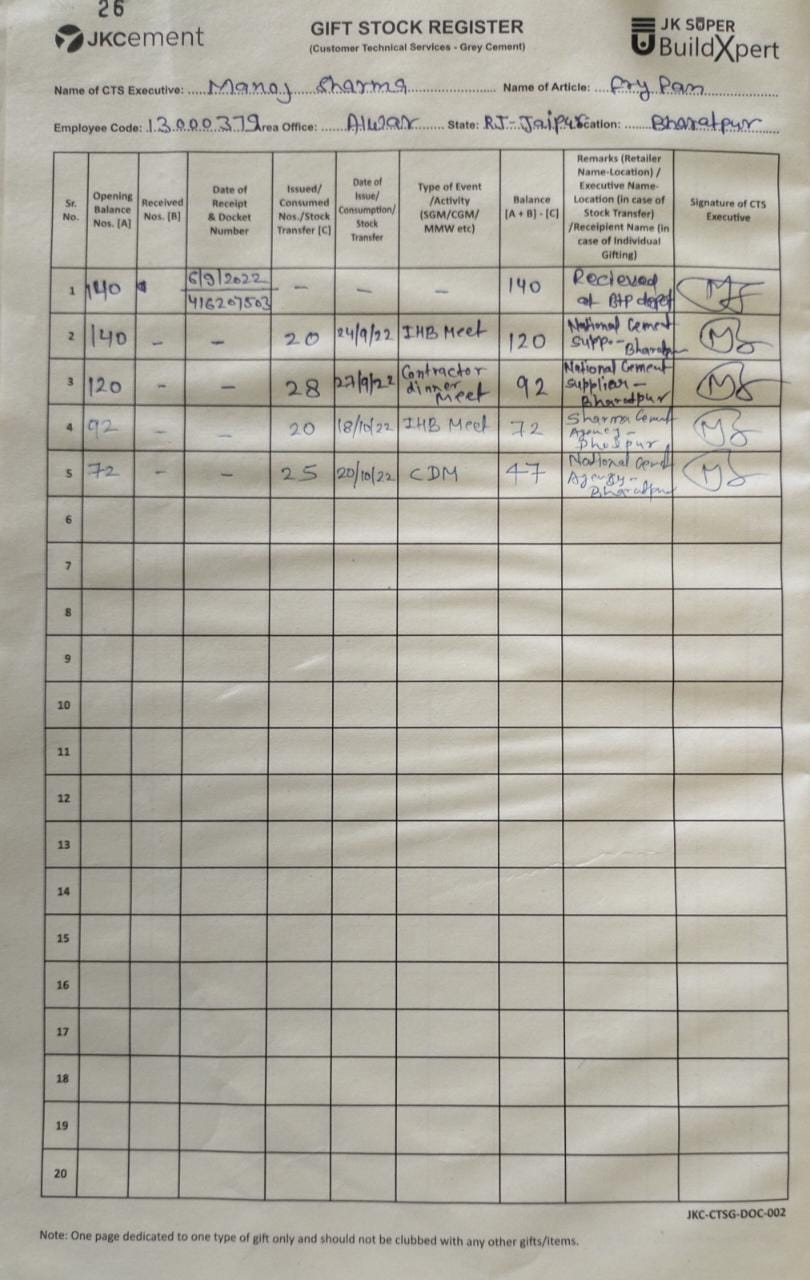 26
JKCement
GIFT STOCK REGISTER
(Customer Technical Services - Grey Cement)
JK SUPER
BuildXpert
Name of CTS Executive: Manoj Sharma Name of Article: Fry Pan
Employee Code: 13000379 Area Office: Alwar State: RJ-Jaipur Location: Bharatpur
Sr. No. Opening Balance Nos. [A] Received Nos. [B] Date of Receipt & Docket Number Issued/ Consumed Nos./Stock Transfer [C] Date of Issue/ Consumption/ Stock Transfer Type of Event /Activity (SGM/CGM/ MMW etc) Balance [A + B] - [C] Remarks (Retailer Name-Location) / Executive Name- Location (in case of Stock Transfer) /Receipient Name (in case of Individual Gifting) Signature of CTS Executive
1 140 6/9/2022 416207503 - - - 140 Recieved at BTP depot
2 140 - - 20 24/9/22 IHB Meet 120 National Cement Supp.- Bharatpur
3 120 - - 28 27/9/22 Contractor dinner Meet 92 National Cement Supplier- Bharatpur
4 92 - - 20 18/10/22 IHB Meet 72 Sharma Cement Agency-
5 72 - - 25 20/10/22 CDM 47 National Cement Agengy- Bharatpur
6
7
8
9
10
11
12
13
14
15
16
17
18
19
20
JKC-CTSG-DOC-002
Note: One page dedicated to one type of gift only and should not be clubbed with any other gifts/items.